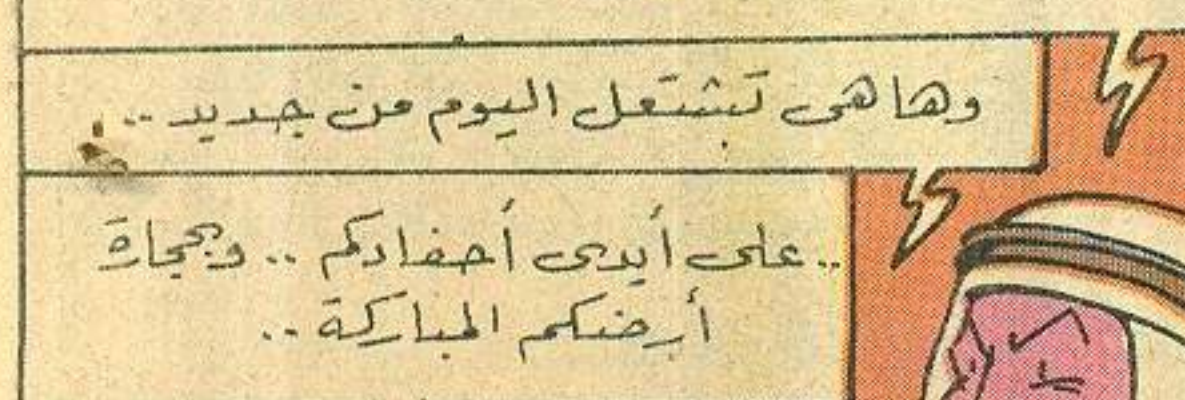 وها هى تشتعل اليوم من جديد ..
.. على أيدى أحفادكم .. وبحجارة
أرضكم المباركة ..